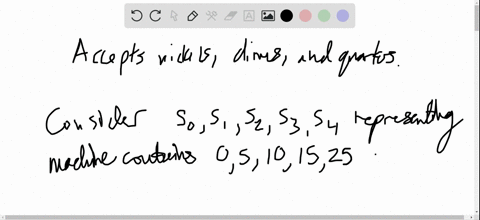 Accepts nickels, dimes, and quarters.
Consider S₀, S₁, S₂, S₃, S₄ representing
machine contains 0, 5, 10, 15, 25